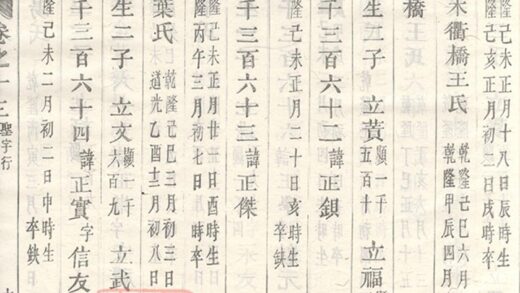 隆己未正月十八日辰時生
隆己亥正月初三日戌時卒
未衢橋王氏
乾隆己巳六月
乾隆甲辰四月
橋王氏
生一子
立黃
願一千
五百十
立福
願一
千三百六十二
諱正鋇
隆己未正月二十日亥時生
卒缺
千三百六十三
諱正傑
隆己未正月廿五日酉時生
隆丙午三月初七日
時卒
葉氏
乾隆己巳三月初三日
道光乙酉十二月初八
生二子
立文
願一千
六百九
立武
千三百六十四
諱正實
字
信友
隆己未二月初二日申時生
卒缺
卷之一三
聖字行